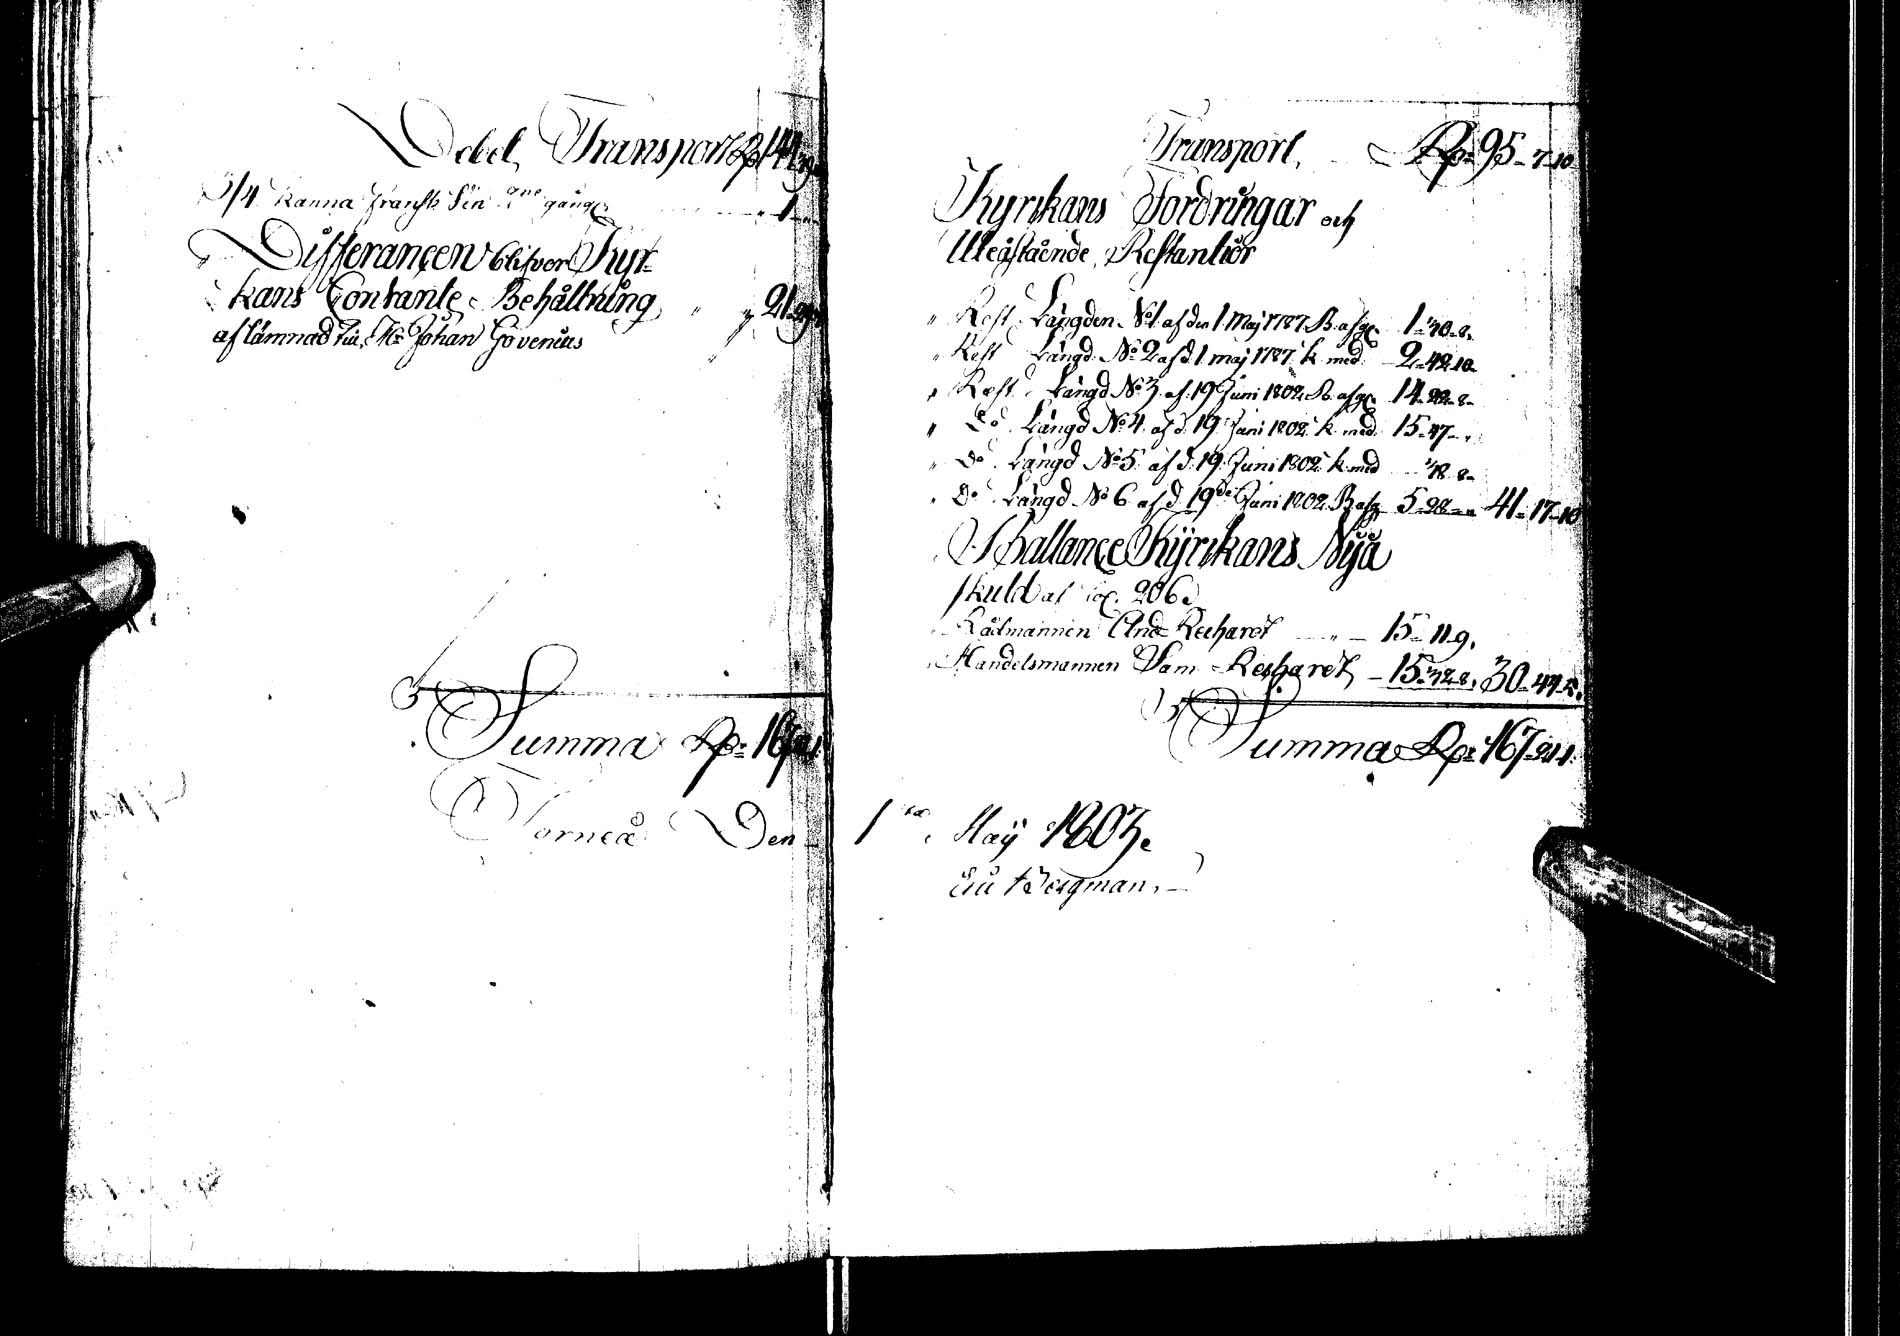 Debet, Transport Rp 144 39
3/4 Kanna Fransk Vin 2ne gånger 1
Differancen blifver Kyr-
kans Contante Behållning 21
aflämnad till Mr Johan Govenius
Summa Rp 167
Torneå Den
Transport, Rp 95-7-10
Kyrkans Fordringar och
Uteåstående Restantier
Rest Längden No 1 af den 1 Maj 1787 B. afg. 1-30-8,
Rest Längd No 2 af d. 1 maj 1787 k. med 2-42-10
Rest Längd No 3 af 19 Juni 1802 B. afg. 14-22-8-
Do Längd No 4 af d. 19 Juni 1802 k. med 15-47-"
Do Längd No 5 af d. 19 Juni 1802 k. med 8-
Do Längd No 6 af d. 19de Juni 1802 B. afg 5-28-" 41-17-10
Ballance Kyrkans Nya
skuld af 206.
Rådmannen And Reichardt 15-11-9,
Handelsmannen Sam Reichardt 15-32-8, 30-44-5,
Summa Rp 167-21-1
1 May 1803.
Bergman.